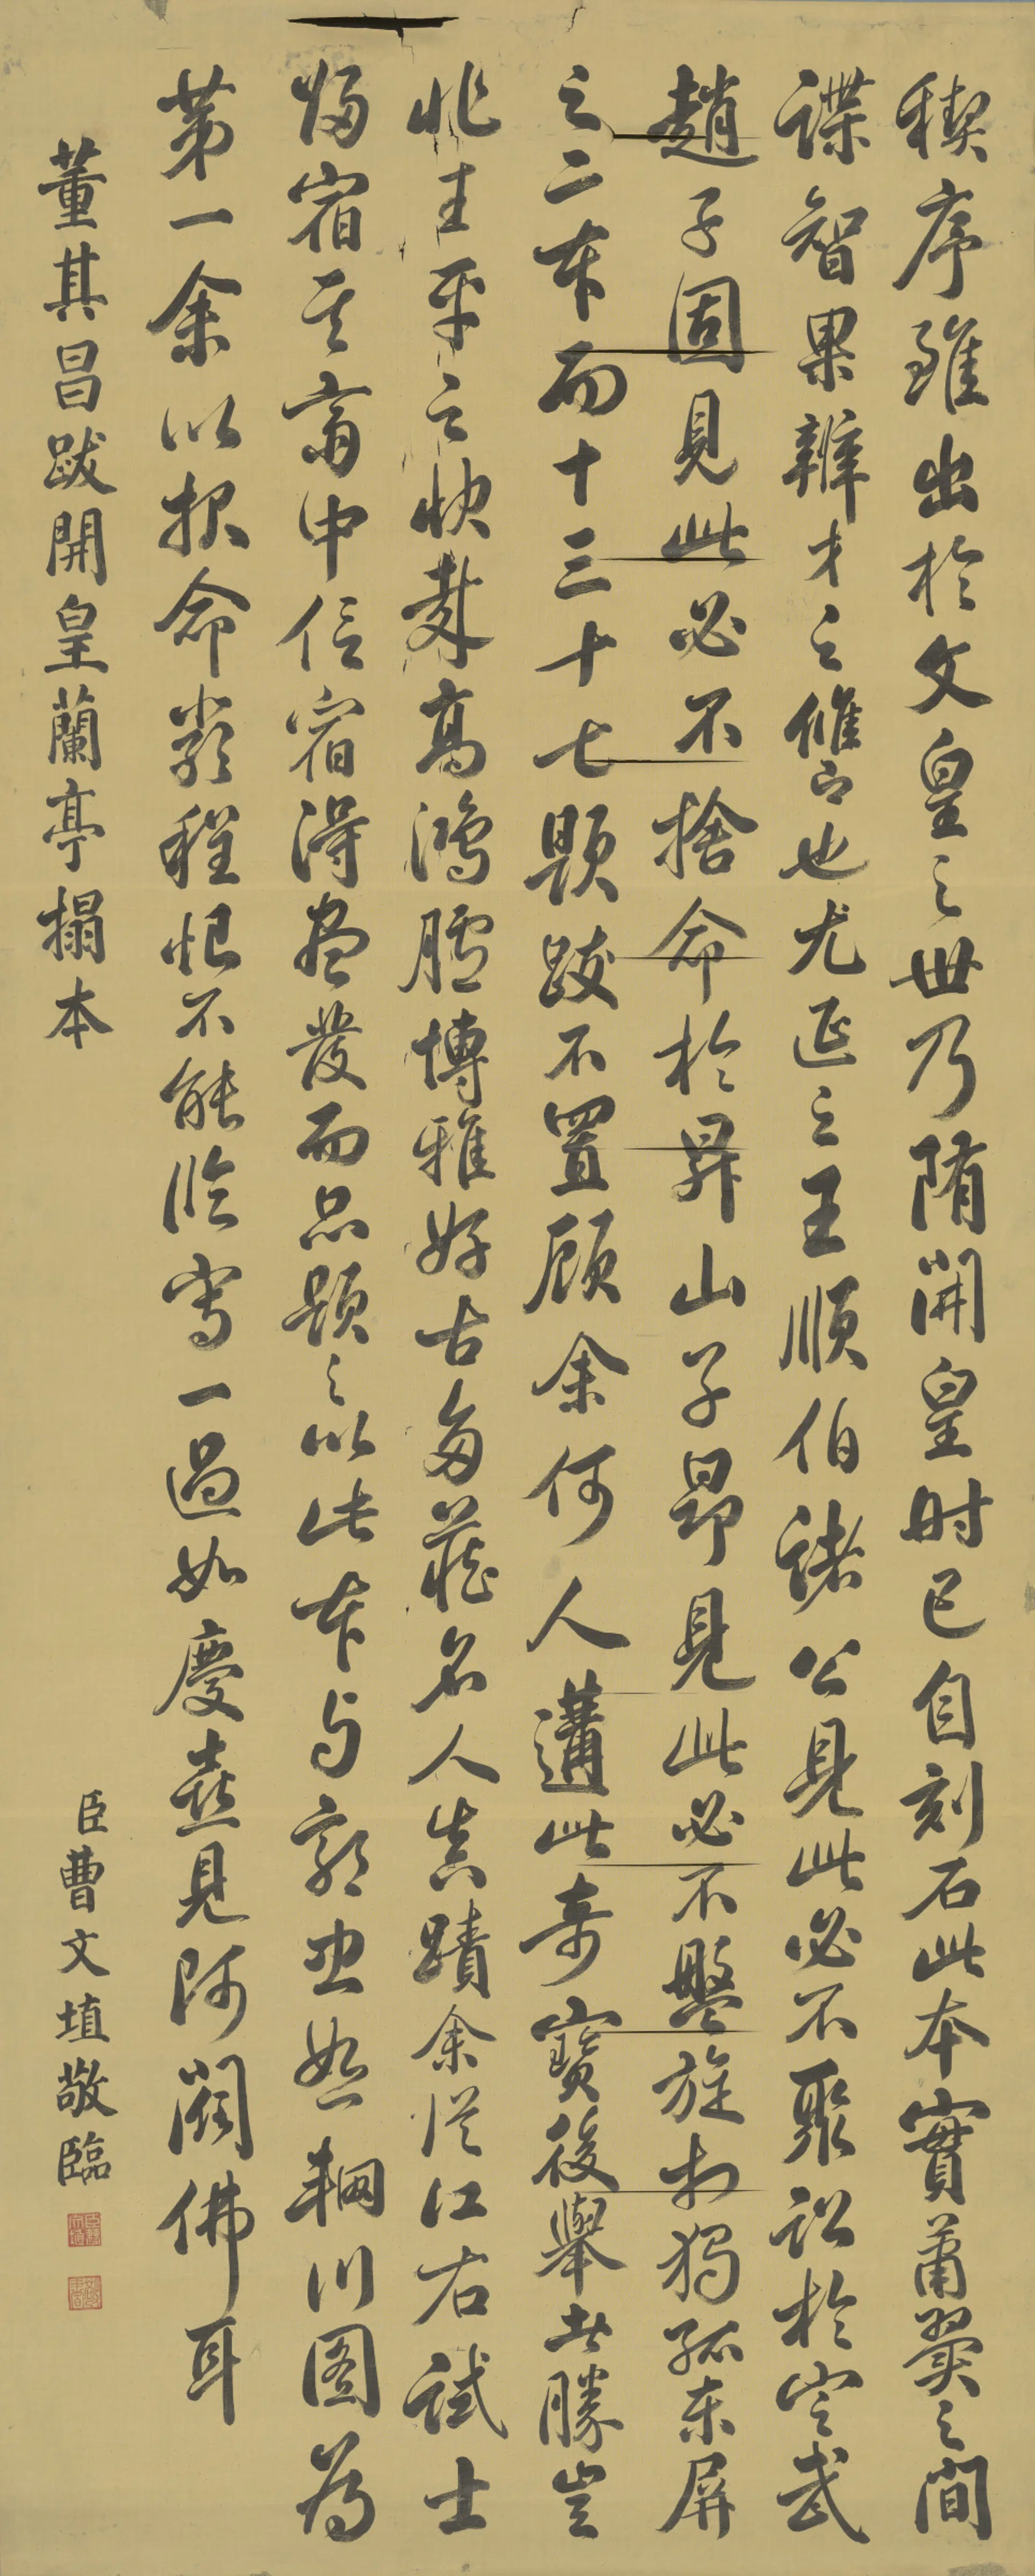 稧序雖出於文皇之世乃隋開皇時已自刻石此本實蕭翼之間
諜智果辨才之讎也尤延之王順伯諸公見此必不聚訟於定武
趙子固見此必不捨命於昇山子昂見此必不盤旋於獨孤東屏
之二本而十三十七題跋不置顧余何人遘此奇寶後舉此勝豈
非生平之快哉高鴻臚博雅好古多藏名人真蹟余從江右試士
歸宿其齋中信宿得盡發而品題之以此本与郭忠恕輞川图為
第一余以报命嚴程恨不能临寫一過如慶喜見阿閦佛耳
董其昌跋開皇蘭亭搨本
臣曹文埴敬臨